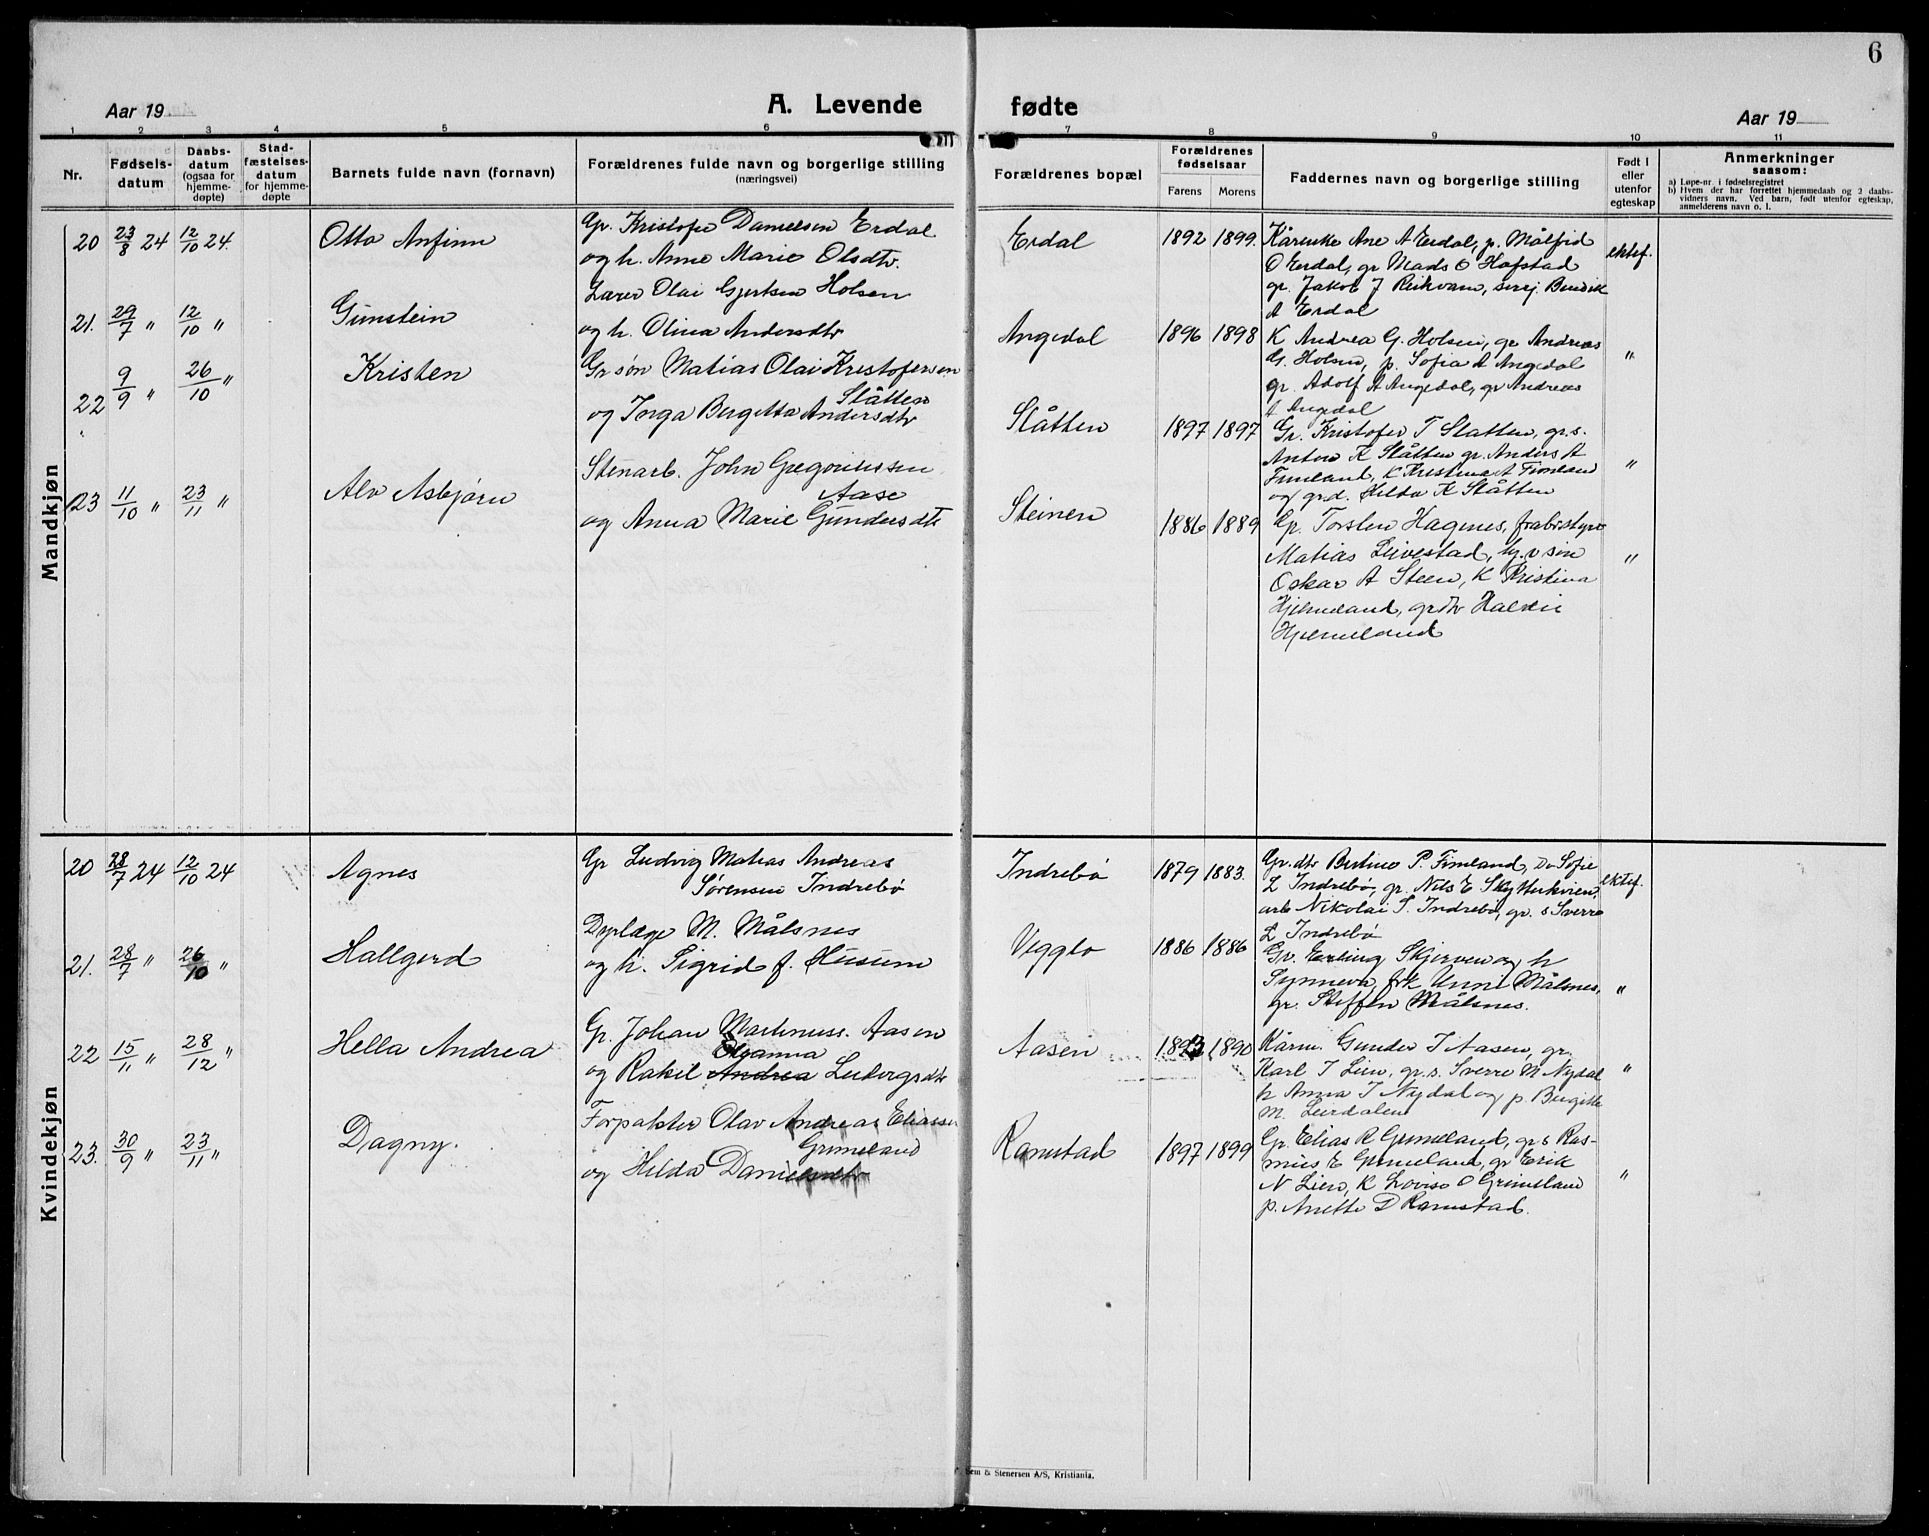 6
Aar 19
A. Levende
fødte
Aar 19
1 2 3 4 5 6 7 8 9 10 11
Nr.
Fødsels-
datum
Daabs-
datum
(ogsaa for
hjemme-
døpte)
Stad-
fæstelses-
datum
for hjemme-
døpte
Barnets fulde navn (fornavn)
Forældrenes fulde navn og borgerlige stilling
(næringsvei)
Forældrenes bopæl
Forældrenes
fødselsaar
Farens Morens
Faddernes navn og borgerlige stilling
Født i
eller
utenfor
egteskap
Anmerkninger
saasom:
a) Løpe-nr. i fødselsregistret
b) Hvem der har forrettet hjemmedaab og 2 daabs-
vidners navn. Ved barn, født utenfor egteskap,
anmelderens navn o. l.
Mandkjøn
20 23/8 24 12/10 24.
Otto Anfinn
Gr. Kristofer Danielsen Erdal
og h. Anne Marie Olsdtr.
Erdal
1892 1899.
Kårenke Ane A Erdal, p. Målfrid
O Erdal, gr Mads O Hafstad
gr. Jakob J Reikvam, Bendik
A Erdal
ektef.
21. 29/7 " 12/10 "
Gunstein
Lærer Olai Gjertsen Holsen
og h. Olina Andersdtr
Angedal
1896 1898
K Andrea G. Holsen, gr Andreas
G. Holsen, p. Sofia A Angedal
gr. Adolf A Angedal, gr Andreas
A Angedal
"
22 9/9 " 26/10 "
Kristen
Gr søn Matias Olai Kristofersen
Slåtten
og Inga Bergitta Andersdtr
Slåtten
1897 1897
Gr. Kristofer T Slåtten, gr. s.
Anton K Slåtten gr. Anders A
Fimland, K Kristina A Fimland
og gr.d. Hilda K Slåtten
"
23 11/10 " 23/11 "
Alv Asbjørn
Stenarb. John Gregoriussen
Aase
og Anna Marie Gundersdtr
Steinen
1886 1889
Gr. Torsten Hagnes, frabrstyr
Matias Leivestad, søn
Oskar A Steen, K Kristina
Hjelmeland, gr dtr
Hjelmeland
"
Kvindekjøn
20 28/7 24 12/10 24
Agnes
Gr Ludvig Matias Andreas
Sørensen Indrebø
Indrebø
1879 1883.
Gr. dtr Bertine P. Fimland, Do Sofie
L Indrebø, gr. Nils E Skytterkvien,
arb Nikolai S. Indrebø, gr. s Sverre
L Indrebø
ektef.
21. 28/7 " 26/10 "
Hallgerd
Dyrlæge M. Målsnes
og h. Sigrid f. Husum
Veggbo
1886 1886
Gr. Erling Skjerven og h
Synneva, frk Unni Målsnes,
gr. Steffen Målsnes.
"
22 15/11 " 28/12 "
Hella Andrea
Gr. Johan Martinuss. Aasen
Elganna
og Rakel Andrea Ludvigsdtr
Aasen
1893 1890
Kårm. Gunder J Aasen, gr.
Karl J Lien, gr. s. Sverre M Nydal
h Anna J Nydal og p. Bergitte
M. Leirdalen
"
23. 30/9 " 23/11 "
Dagny.
Forpakter Olav Andreas Eliassen
Grimeland
og Hilda Danielsdtr
Ramstad
1897 1899
Gr. Elias R Grimeland, gr s Ras-
mus E Grimeland, gr Erik
N Lien, K Lovise O Grimeland
p. Anette D Ramstad.
"
Sem & Stenersen A/S, Kristiania.